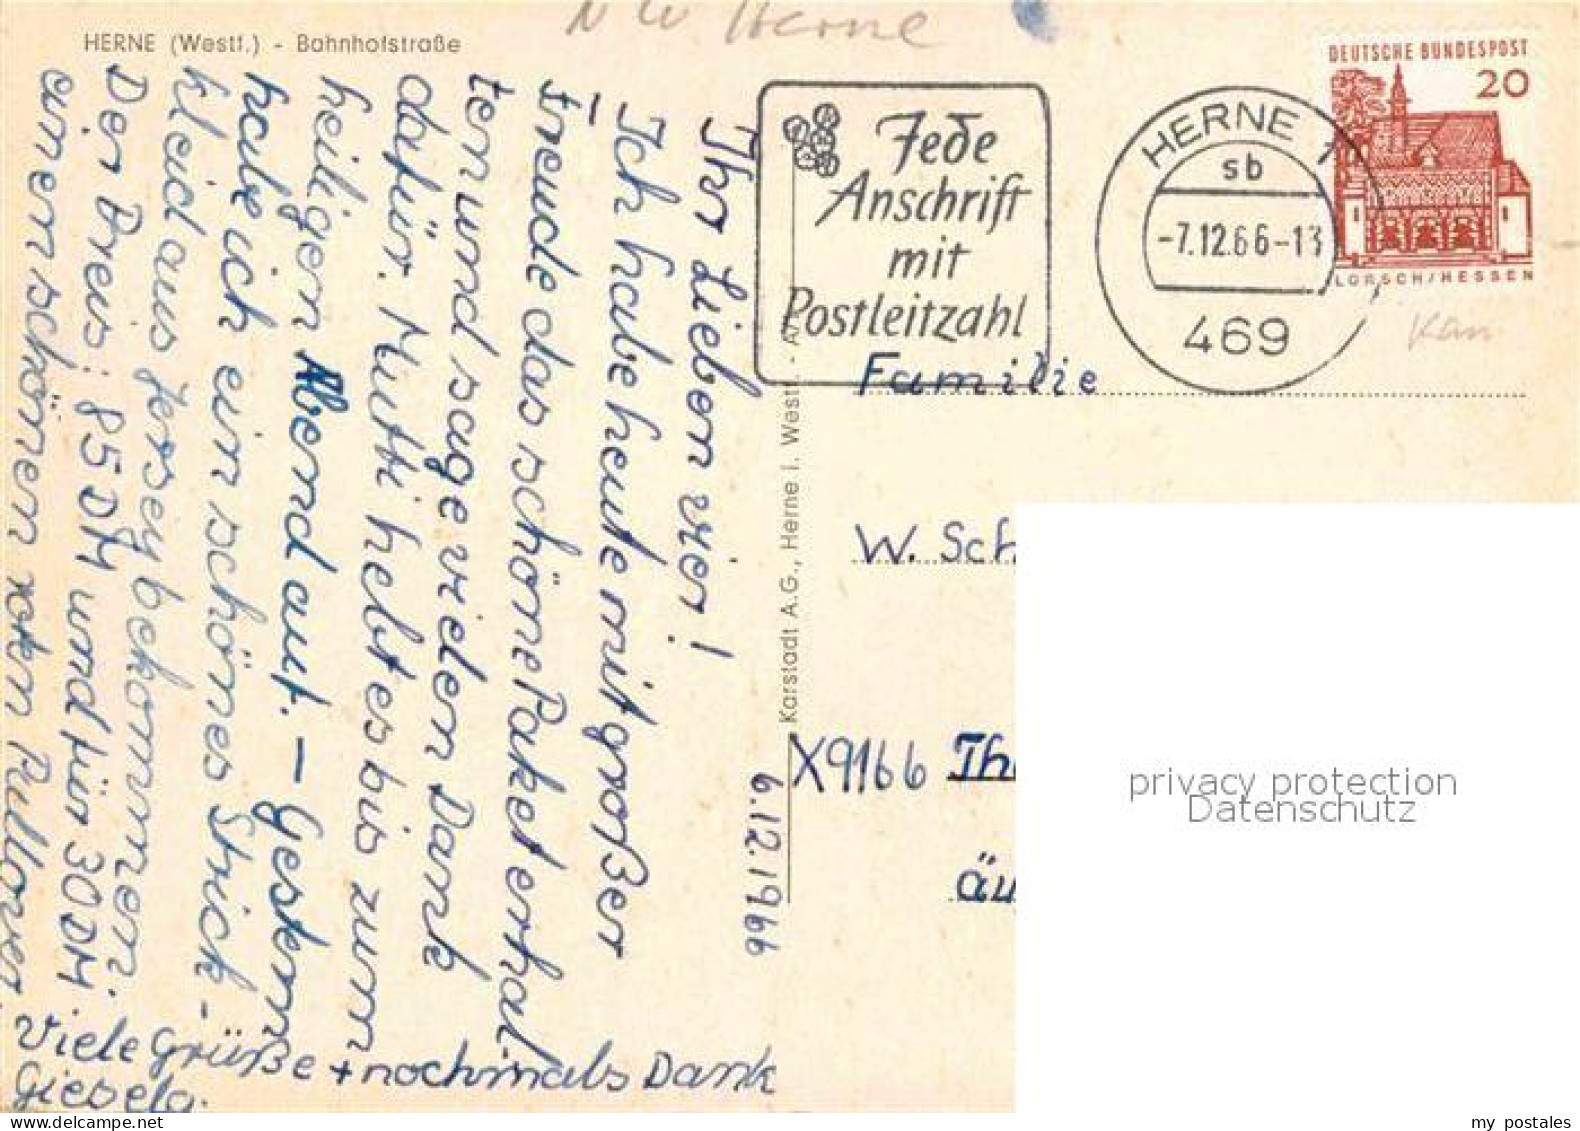 HERNE (Westf.) - Bahnhofstraße
NW Herne
DEUTSCHE BUNDESPOST
20
LORSCH/HESSEN
Jede
Anschrift
mit
Postleitzahl
HERNE 1
sb
-7.12.66-13
469
6.12.1966
Ihr Lieben vier!
Ich habe heute mit großer
Freude das schöne Paket erhal-
ten und sage vielen Dank
dafür. Mutti hebt es bis zum
heiligen Abend auf. - Gestern
habe ich ein schönes Strick-
kleid aus Jersey bekommen.
Der Preis: 85 DM und für 30 DM
einen schönen roten Pullover.
Viele Grüße + nochmals Dank
Giesela.
Karstadt A.G., Herne i. Westf. -
Familie
W. Sch
X9166 Th
äu
privacy protection
Datenschutz
my postales